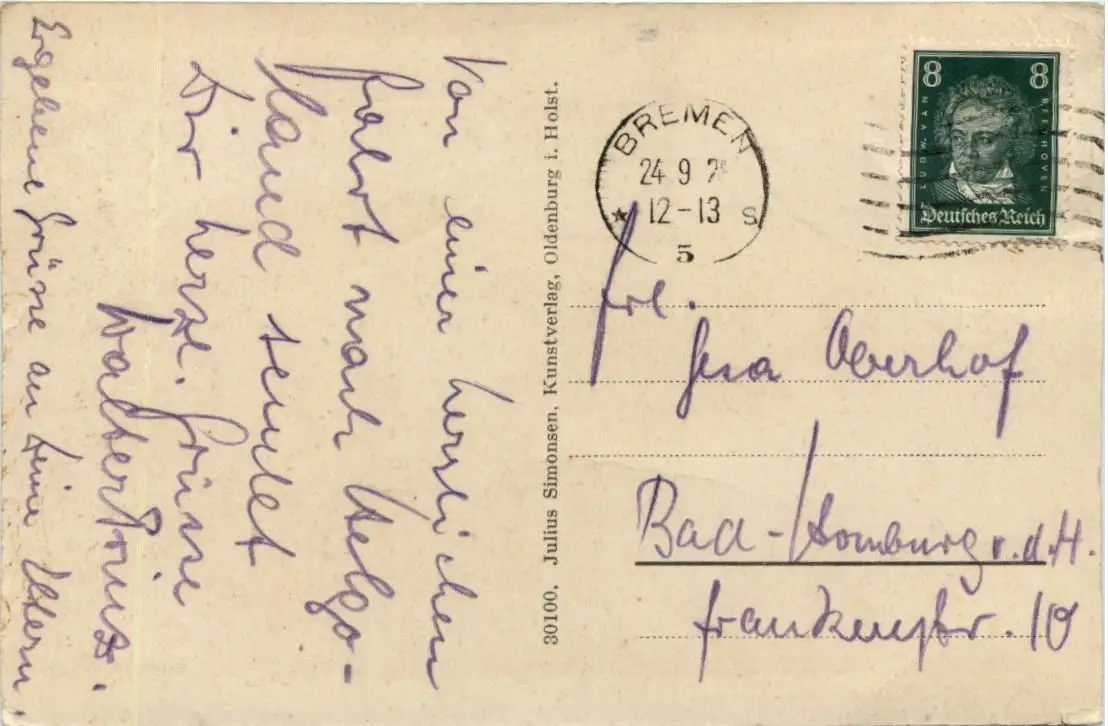 Von einer herrlichen
Fahrt nach Helgo-
land sendet
Dir herzl. Grüsse
Walter
Ergebene Grüsse an Deine Eltern.
30100. Julius Simonsen, Kunstverlag, Oldenburg i. Holst.
BREMEN
24 9 2
12-13 S
5
8 8
LUDW. VAN BEETHOVEN
Deutsches Reich
Frl.
Gesa Oberhof
Bad-Homburg v. d. H.
10